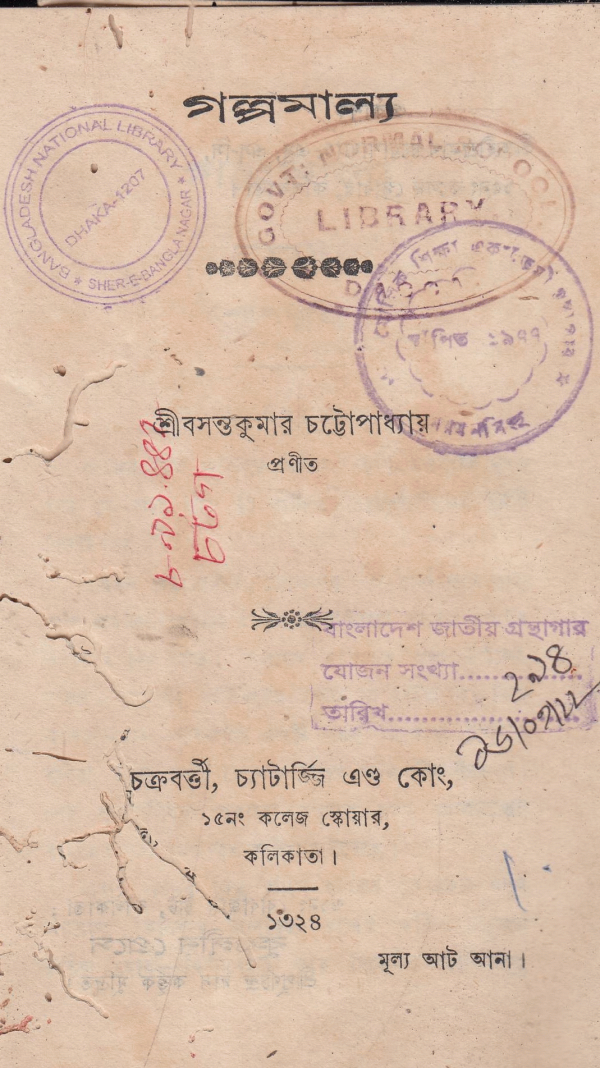 গল্পমাল্য
BANGLADESH NATIONAL LIBRARY
DHAKA-1207
* SHER-E-BANGLA NAGAR *
GOVT: NORMAL SCHOOL
LIBRARY
শিক্ষা একাডেমী
স্থাপিত ১৯৭৭
শ্রীবসন্তকুমার চট্টোপাধ্যায়
প্রণীত
৮৯১.৪৪৩
চট্টগ
বাংলাদেশ জাতীয় গ্রন্থাগার
যোজন সংখ্যা..............
২৯৪
তারিখ......................
চক্রবর্ত্তী, চ্যাটার্জ্জি এণ্ড কোং,
১৫নং কলেজ স্কোয়ার,
কলিকাতা।
১৩২৪
মূল্য আট আনা।